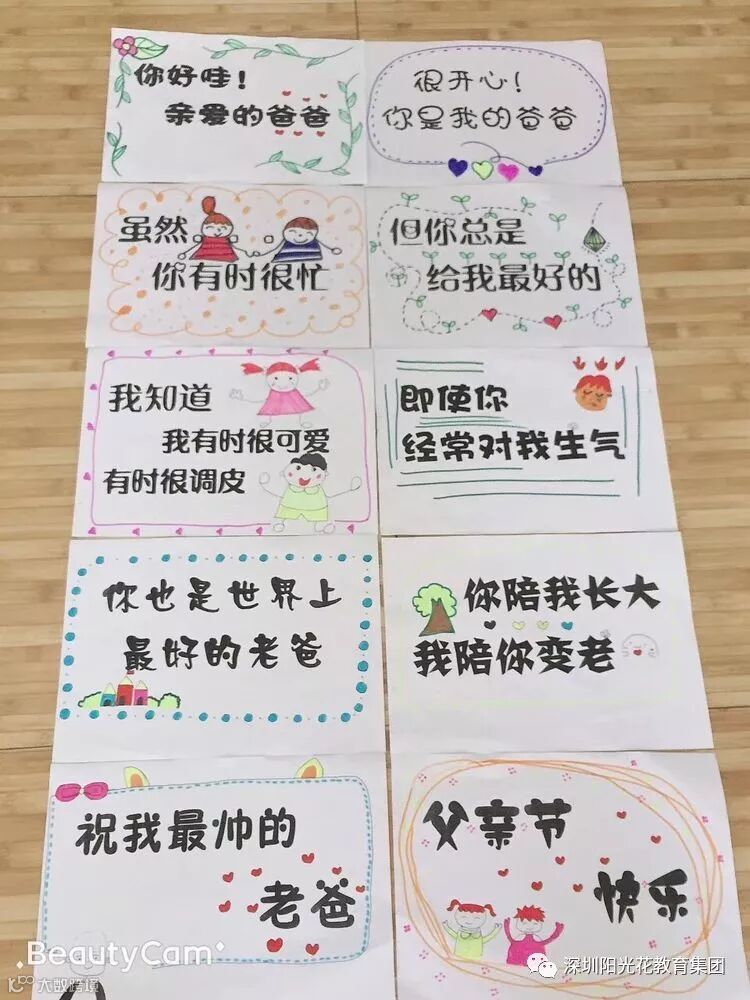 你好哇！
亲爱的爸爸
很开心！
你是我的爸爸
虽然
你有时很忙
但你总是
给我最好的
我知道
我有时很可爱
有时很调皮
即使你
经常对我生气
你也是世界上
最好的老爸
你陪我长大
我陪你变老
祝我最帅的
老爸
父亲节
快乐
BeautyCam
大数跨境
深圳阳光花教育集团